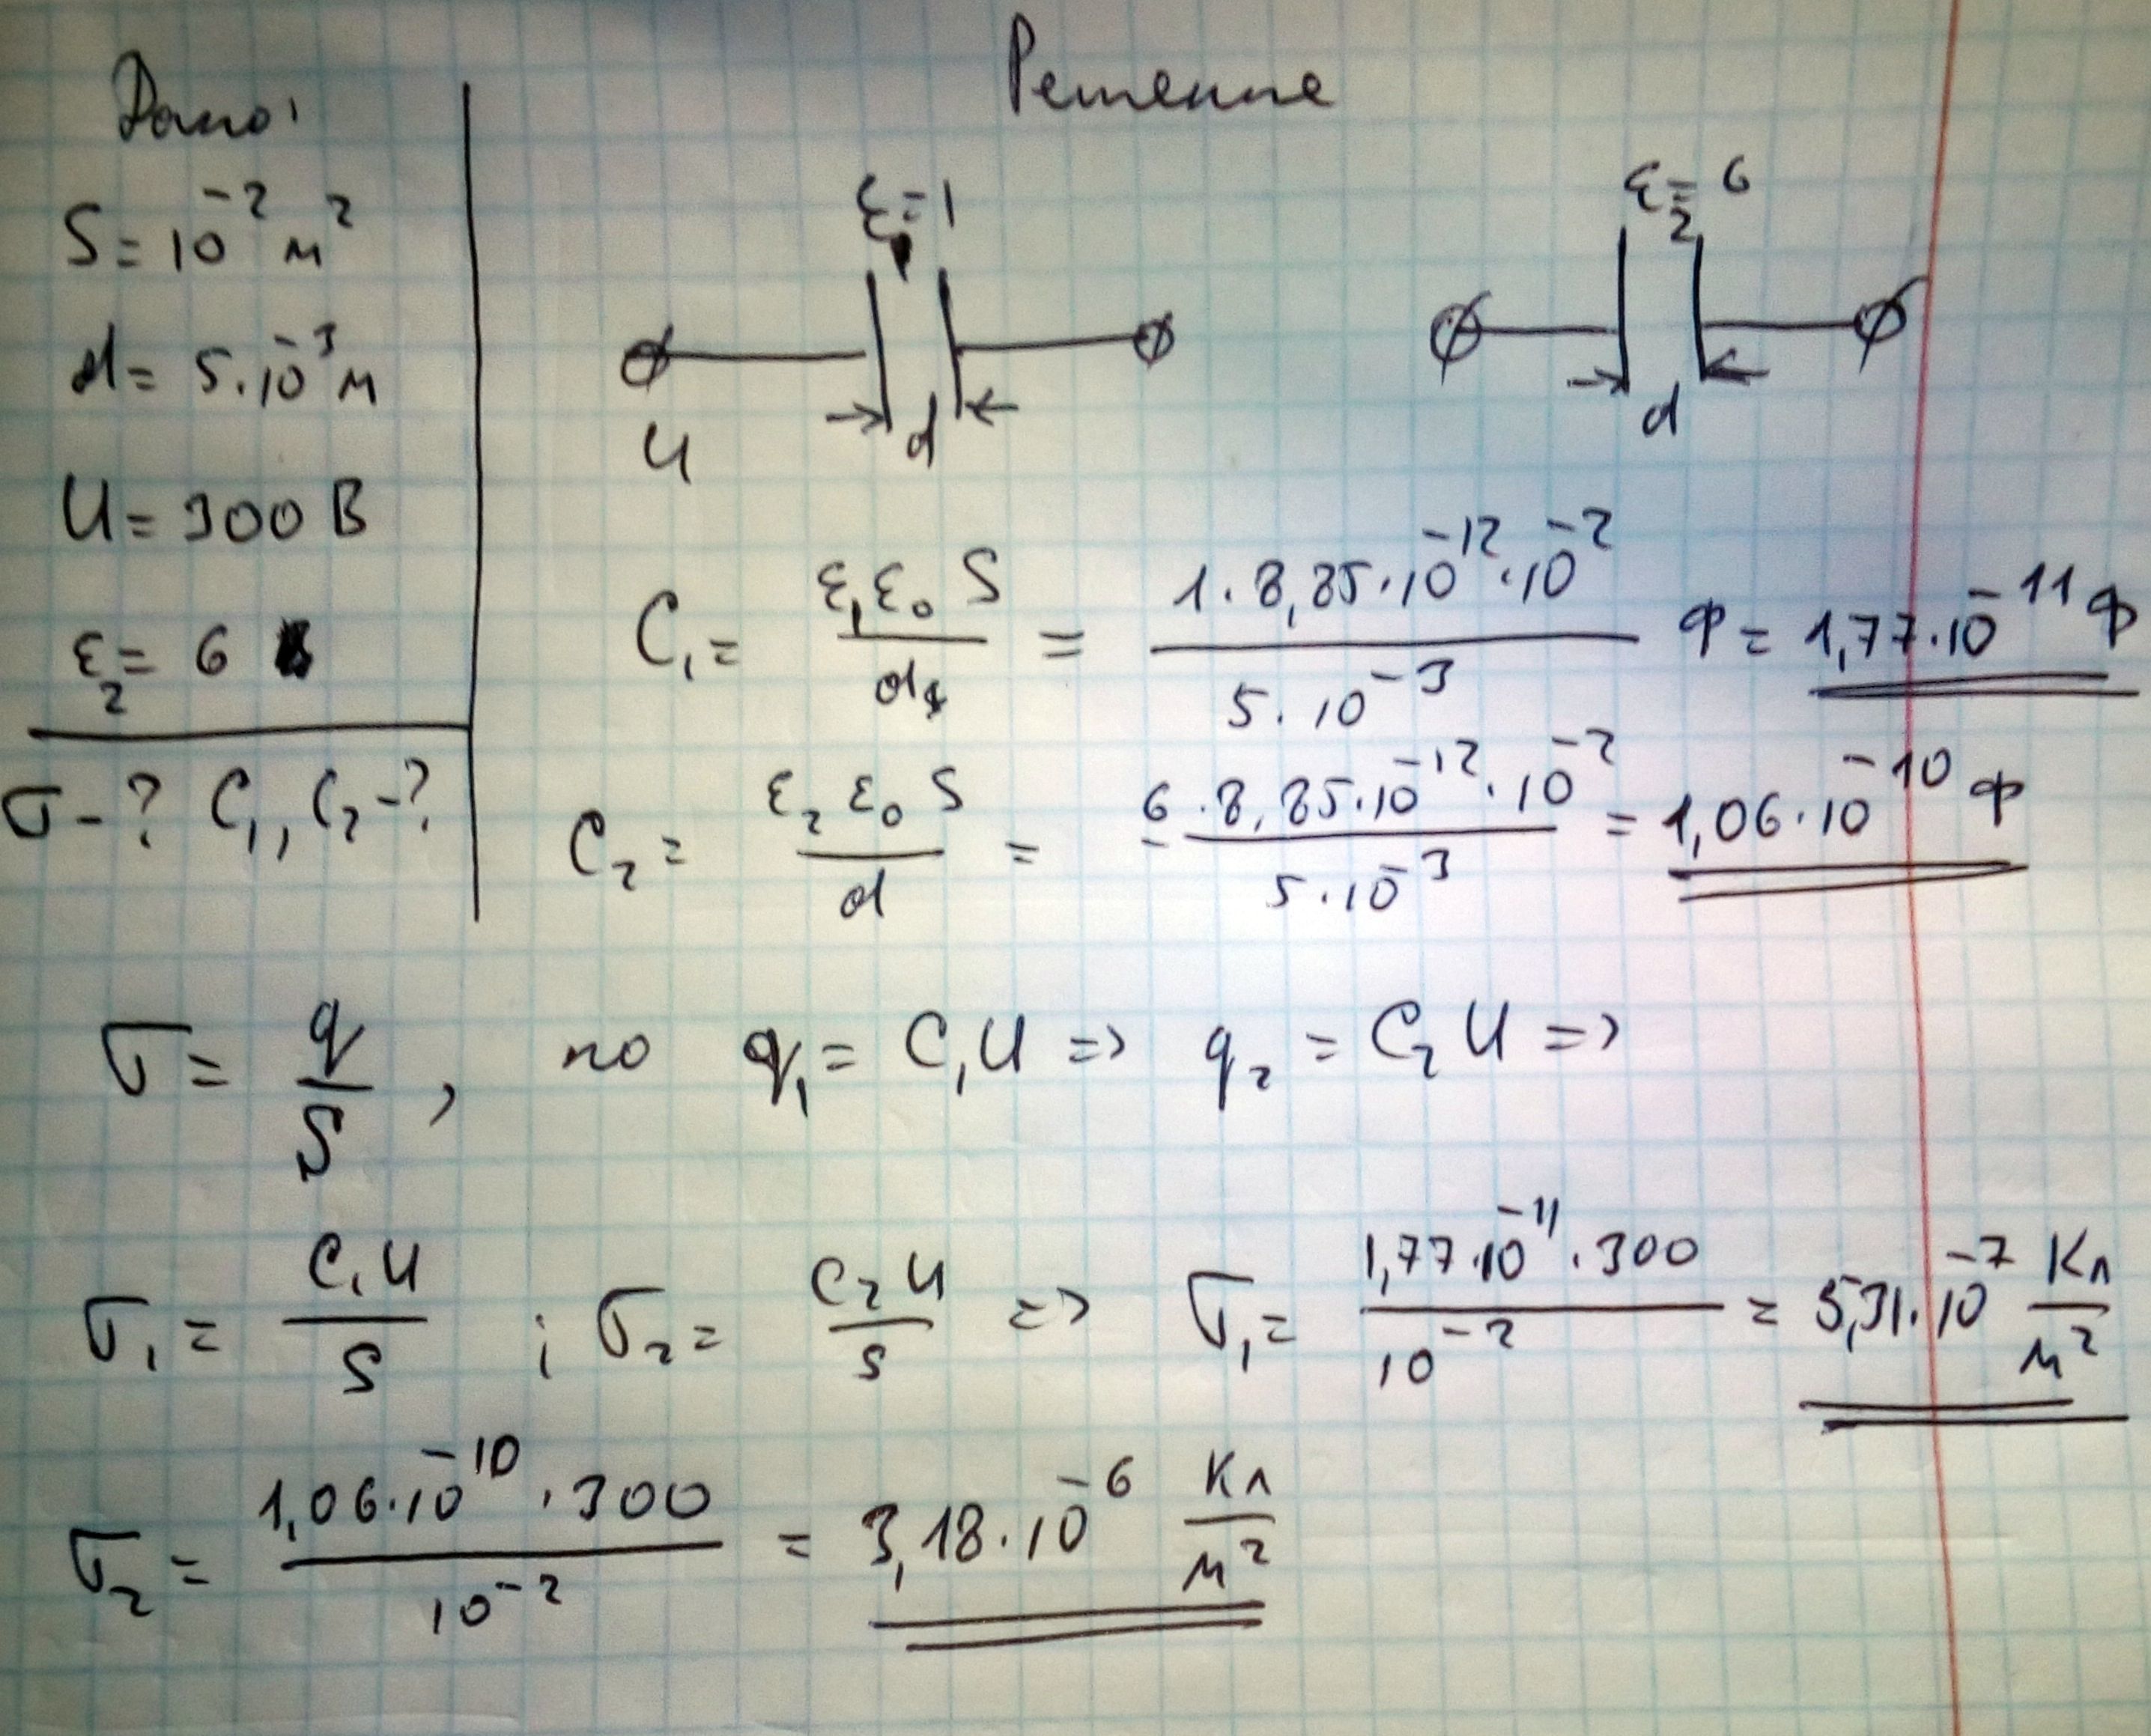 Дано:
S = 10⁻² м²
d = 5·10⁻³ м
U = 300 В
ε₂ = 6
σ - ? C₁, C₂ - ?
Решение
ε₁ = 1
U
d
ε₂ = 6
d
C₁ = ε₁ε₀S / d = 1·8,85·10⁻¹²·10⁻² / 5·10⁻³ Ф = 1,77·10⁻¹¹ Ф
C₂ = ε₂ε₀S / d = 6·8,85·10⁻¹²·10⁻² / 5·10⁻³ = 1,06·10⁻¹⁰ Ф
σ = q / S, но q₁ = C₁U => q₂ = C₂U =>
σ₁ = C₁U / S ; σ₂ = C₂U / S => σ₁ = 1,77·10⁻¹¹·300 / 10⁻² = 5,31·10⁻⁷ Кл / м²
σ₂ = 1,06·10⁻¹⁰·300 / 10⁻² = 3,18·10⁻⁶ Кл / м²